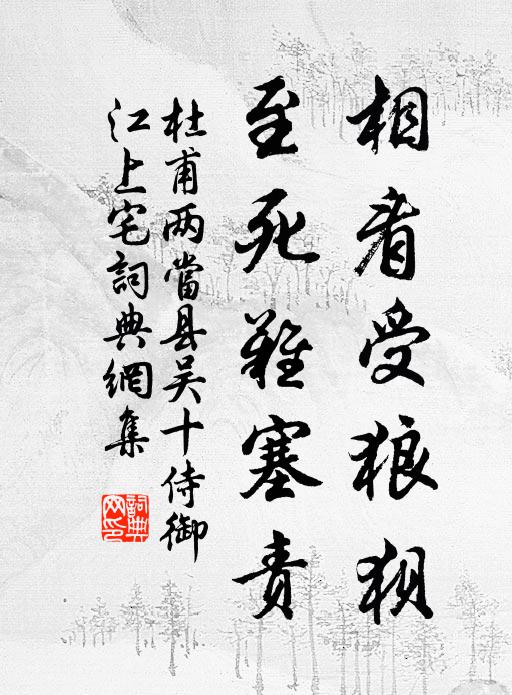 相看受狼狽
至死難塞責
杜甫两當县吴十侍御
江上宅詞典網集
詞典
网印